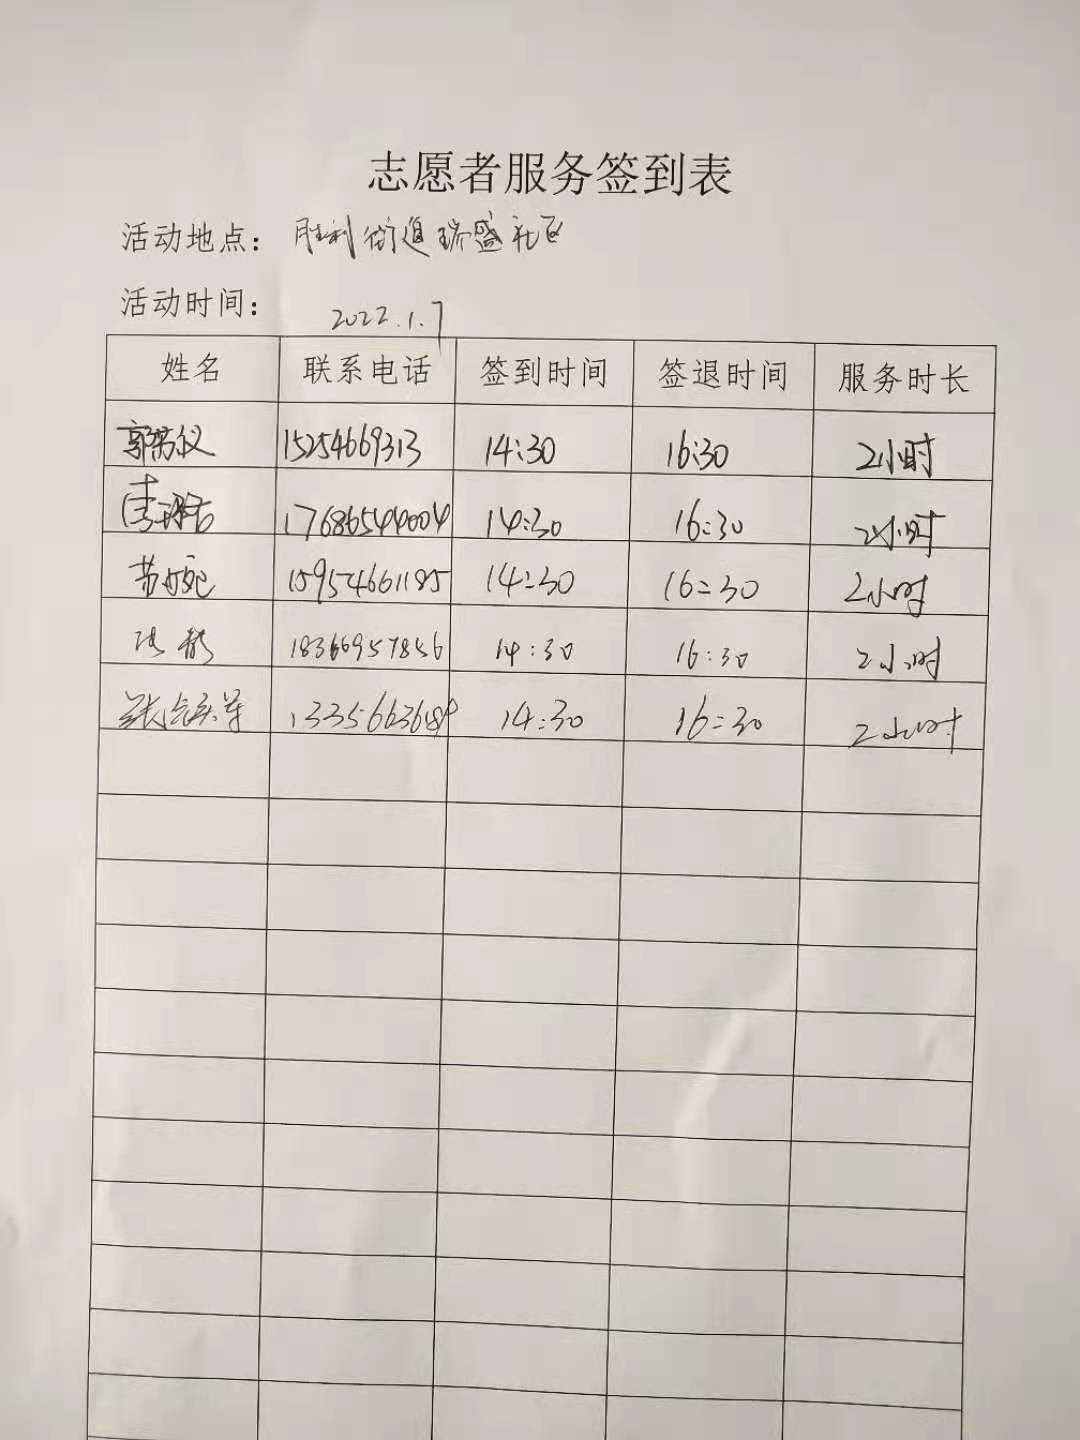 志愿者服务签到表
活动地点：胜利街道瑞盛社区
活动时间：2022.1.7
姓名 联系电话 签到时间 签退时间 服务时长
15254669313 14:30 16:30 2小时
17686544004 14:30 16:30 2小时
15954661185 14:30 16:30 2小时
18366957856 14:30 16:30 2小时
14:30 16:30 2小时